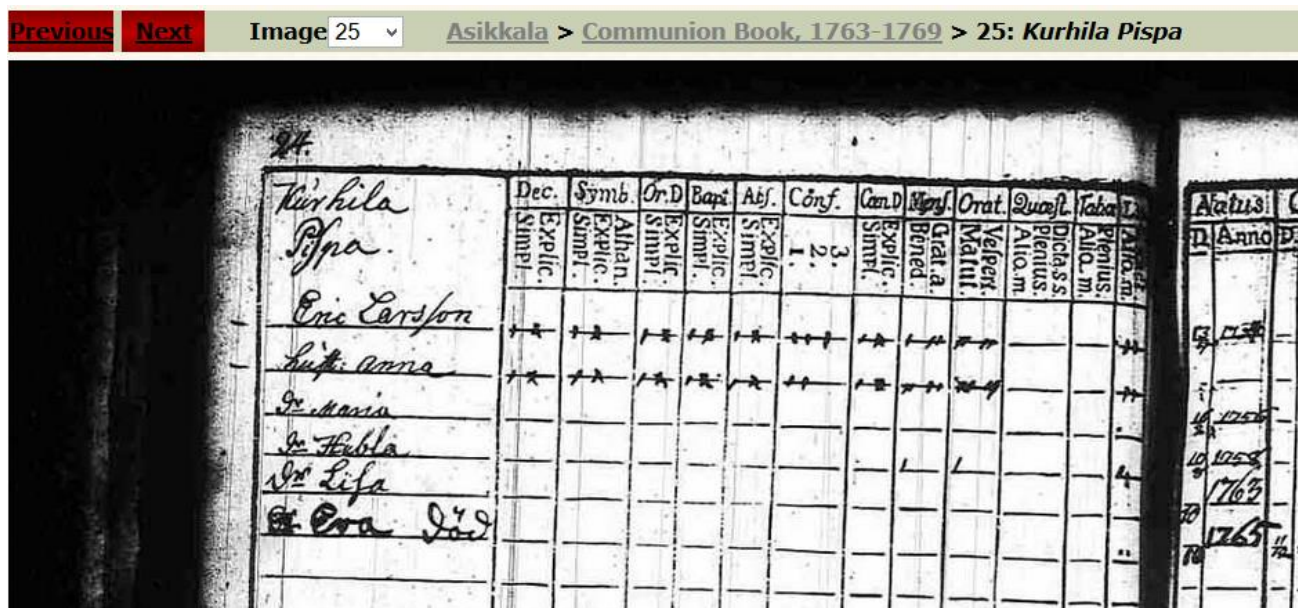 Previous Next Image 25 Asikkala > Communion Book, 1763-1769 > 25: Kurhila Pispa
24.
Kürhila
Pispa.
Dec. Symb. Or.D Bapt. Abs. Conf. Cœn.D Mens. Orat. Quæst. Taba
Explic. Simpl.
Athan. Explic. Simpl.
Explic. Simpl.
Explic. Simpl.
Explic. Simpl.
3. 2. 1.
Explic. Simpl.
Grat.a. Bened
Vespert. Matut.
Dicta s.s. Plenius. Alio.m.
Plenius. Alia.m.
Natus
D. Anno D.
Eric Larsson
hust: Anna
Dr Maria
Dr Hebla
Dr Lisa
Eva Död
1763
1765